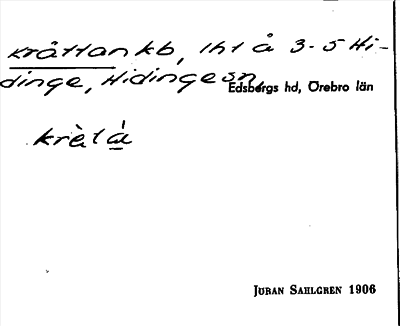 kråttan kb, lht å 3-5 Hi-
dinge, Hidinge sn,
Edsbergs hd, Örebro län
krètá
JÖRAN SAHLGREN 1906